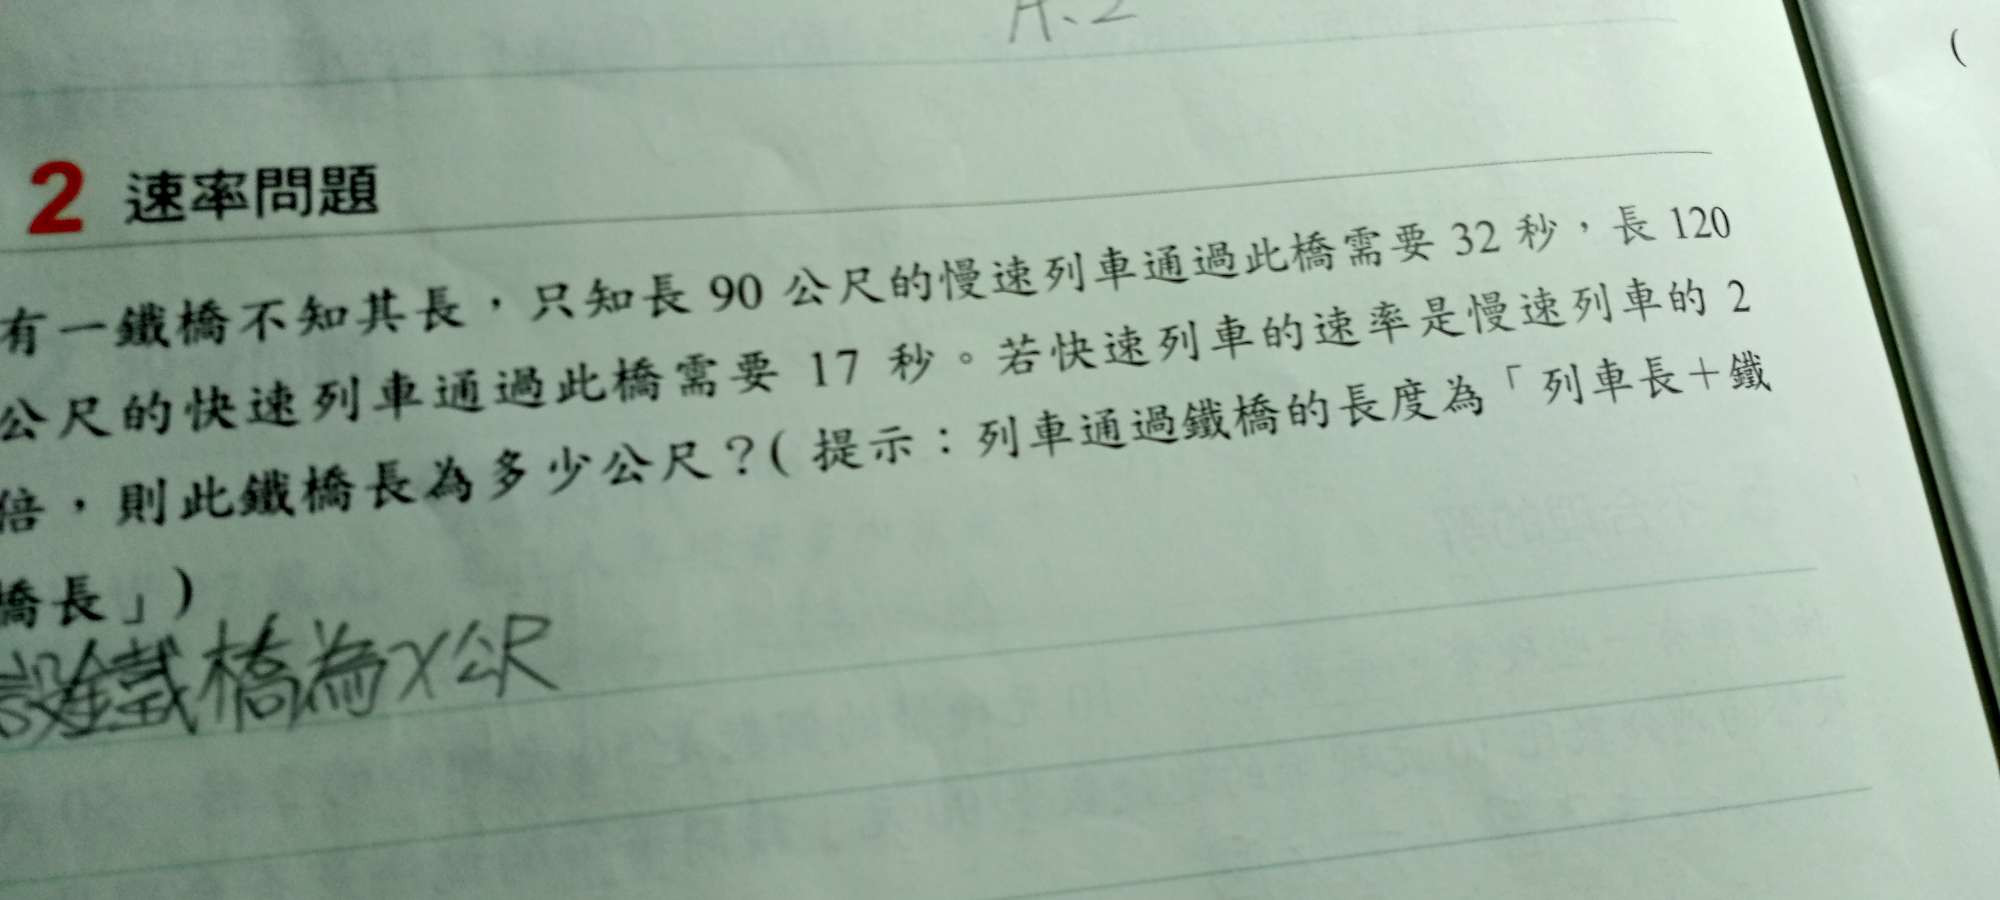 A、2
(
2 速率問題
有一鐵橋不知其長，只知長 90 公尺的慢速列車通過此橋需要 32 秒，長 120
公尺的快速列車通過此橋需要 17 秒。若快速列車的速率是慢速列車的 2
倍，則此鐵橋長為多少公尺？( 提示：列車通過鐵橋的長度為「列車長＋鐵
橋長」)
設鐵橋為x公尺